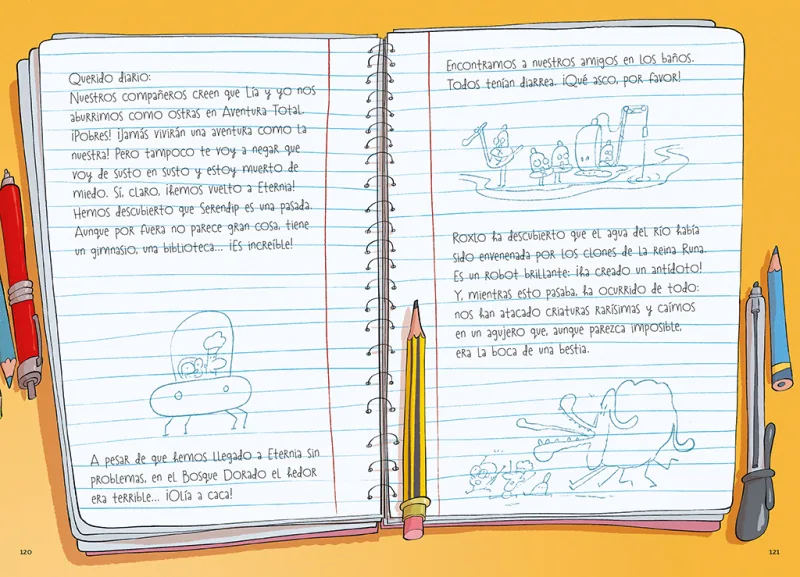 Querido diario:
Nuestros compañeros creen que Lía y yo nos
aburrimos como ostras en Aventura Total.
¡Pobres! ¡Jamás vivirán una aventura como la
nuestra! Pero tampoco te voy a negar que
voy de susto en susto y estoy muerto de
miedo. Sí, claro, ¡hemos vuelto a Eternia!
Hemos descubierto que Serendip es una pasada.
Aunque por fuera no parece gran cosa, tiene
un gimnasio, una biblioteca... ¡Es increíble!
A pesar de que hemos llegado a Eternia sin
problemas, en el Bosque Dorado el hedor
era terrible... ¡Olía a caca!
120
Encontramos a nuestros amigos en los baños.
Todos tenían diarrea. ¡Qué asco, por favor!
Roxlo ha descubierto que el agua del río había
sido envenenada por los clones de la reina Runa.
Es un robot brillante: ¡ha creado un antídoto!
Y, mientras esto pasaba, ha ocurrido de todo:
nos han atacado criaturas rarísimas y caímos
en un agujero que, aunque parezca imposible,
era la boca de una bestia.
121